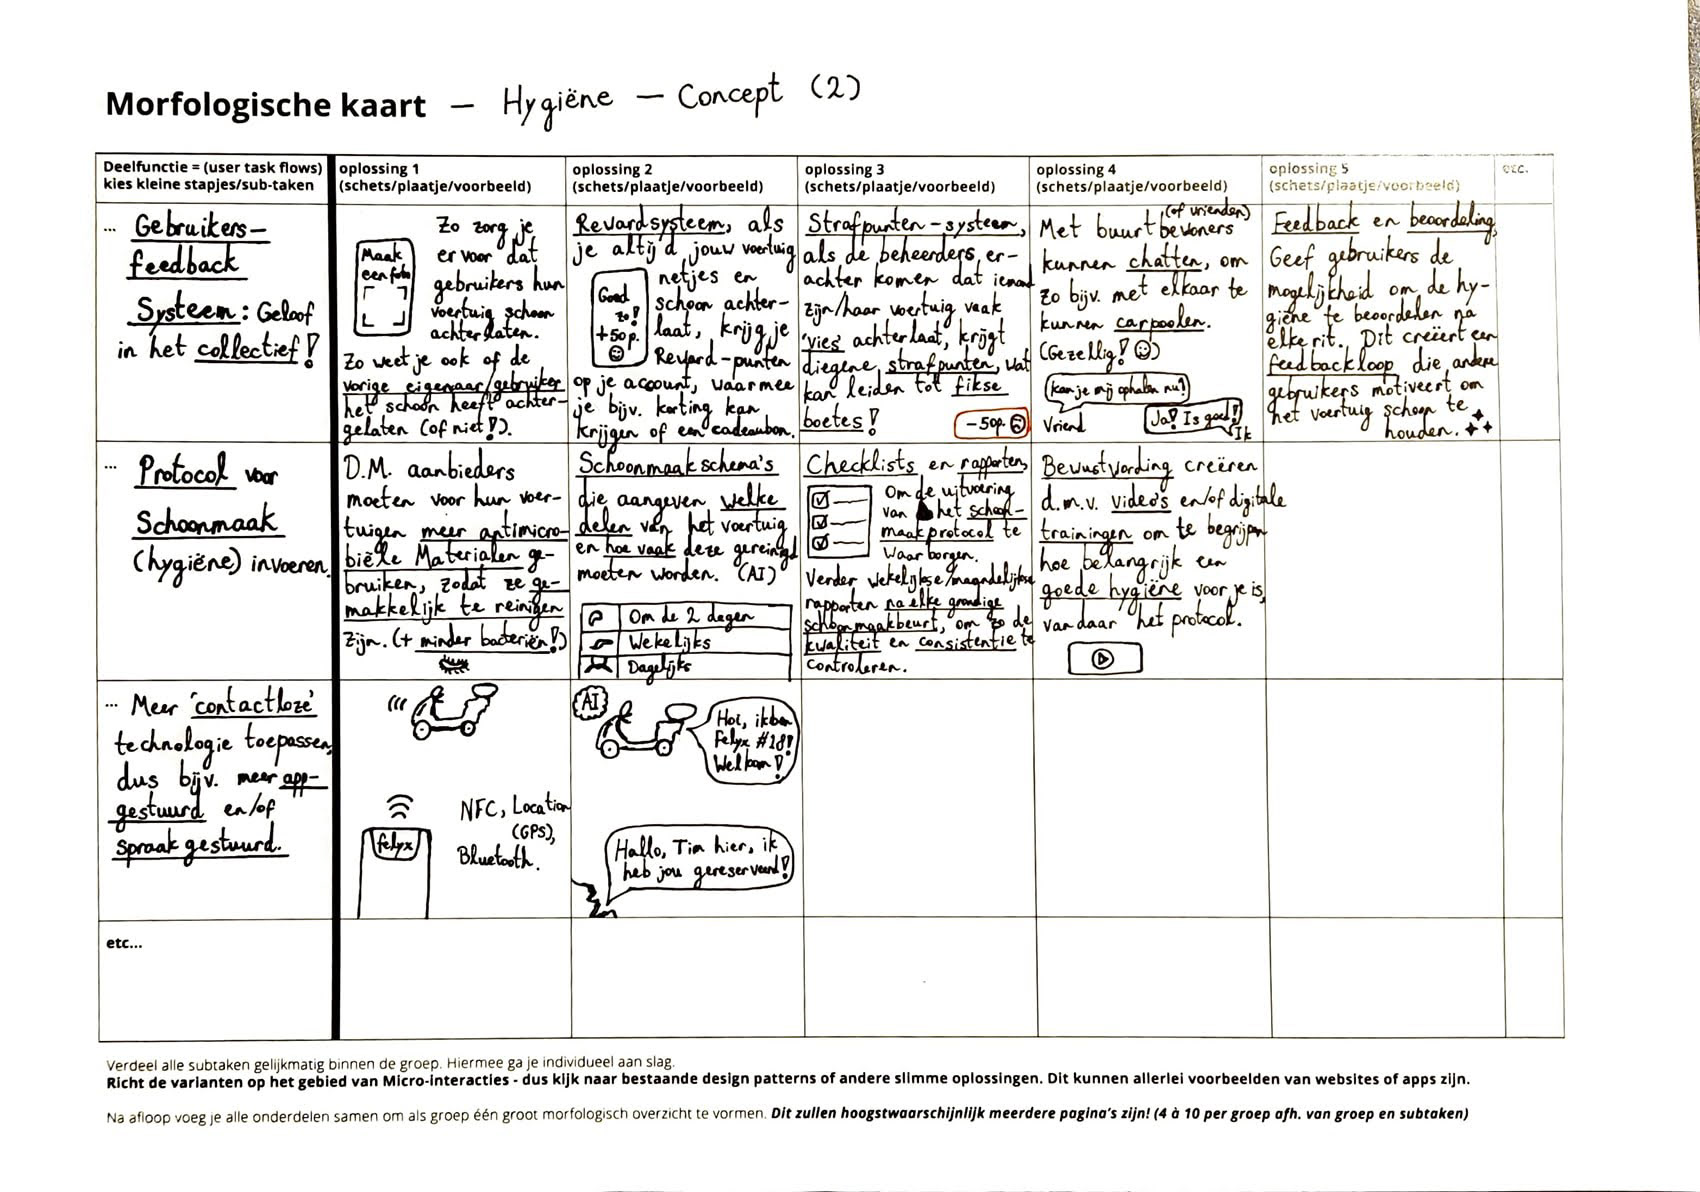 Morfologische kaart — Hygiëne — Concept (2)
Deelfunctie = (user task flows)
kies kleine stapjes/sub-taken
oplossing 1
(schets/plaatje/voorbeeld)
oplossing 2
(schets/plaatje/voorbeeld)
oplossing 3
(schets/plaatje/voorbeeld)
oplossing 4
(schets/plaatje/voorbeeld)
oplossing 5
(schets/plaatje/voorbeeld)
etc.
... Gebruikers-
feedback
Systeem: Geloof
in het collectief!
Zo zorg je
er voor dat
gebruikers hun
voertuig schoon
achterlaten.
Maak
een foto
Zo weet je ook of de
vorige eigenaar/gebruiker
het schoon heeft achter-
gelaten (of niet!).
Revardsysteem, als
je altijd jouw voertuig
netjes en
schoon achter-
laat, krijg je
Revard-punten
Goed
zo!
+50p.
op je account, waarmee
je bijv. korting kan
krijgen of een cadeaubon.
Strafpunten-systeem,
als de beheerders er-
achter komen dat iemand
zijn/haar voertuig vaak
'vies' achterlaat, krijgt
diegene strafpunten, wat
kan leiden tot fikse
boetes!
-50p.
Met buurtbewoners
(of vrienden)
kunnen chatten, om
zo bijv. met elkaar te
kunnen carpoolen.
(Gezellig! ☺)
Kan je mij ophalen nu?
Vriend
Ja! Is goed!
Ik
Feedback en beoordeling,
Geef gebruikers de
mogelijkheid om de hy-
giëne te beoordelen na
elke rit. Dit creëert een
feedbackloop die andere
gebruikers motiveert om
het voertuig schoon te
houden.
... Protocol voor
Schoonmaak
(hygiëne) invoeren.
D.M. aanbieders
moeten voor hun voer-
tuigen meer antimicro-
biële Materialen ge-
bruiken, zodat ze ge-
makkelijk te reinigen
zijn. (+ minder bacteriën!)
Schoonmaakschema's
die aangeven welke
delen van het voertuig
en hoe vaak deze gereinigd
moeten worden. (AI)
Om de 2 dagen
Wekelijks
Dagelijks
Checklists en rapporten,
Om de uitvoering
van het schoon-
maakprotocol te
waarborgen.
Verder wekelijkse/maandelijkse
rapporten na elke grondige
schoonmaakbeurt, om zo de
kwaliteit en consistentie te
controleren.
Bewustwording creëren
d.m.v. video's en/of digitale
trainingen om te begrijpen
hoe belangrijk een
goede hygiëne voor je is,
vandaar het protocol.
... Meer 'contactloze'
technologie toepassen,
dus bijv. meer app-
gestuurd en/of
spraakgestuurd.
felyx
NFC, Location
(GPS),
Bluetooth.
AI
Hoi, ik ben
Felyx #18!
Welkom!
Hallo, Tim hier, ik
heb jou gereserveerd!
etc...
Verdeel alle subtaken gelijkmatig binnen de groep. Hiermee ga je individueel aan slag.
Richt de varianten op het gebied van Micro-interacties - dus kijk naar bestaande design patterns of andere slimme oplossingen. Dit kunnen allerlei voorbeelden van websites of apps zijn.
Na afloop voeg je alle onderdelen samen om als groep één groot morfologisch overzicht te vormen. Dit zullen hoogstwaarschijnlijk meerdere pagina's zijn! (4 à 10 per groep afh. van groep en subtaken)